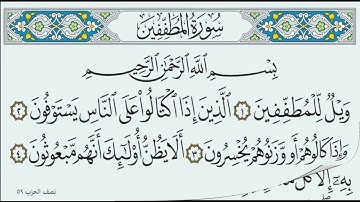 سُورَةُ المُطَفِّفِينَ
بِسْمِ اللَّهِ الرَّحْمَٰنِ الرَّحِيمِ
وَيْلٌ لِّلْمُطَفِّفِينَ ١ الَّذِينَ إِذَا اكْتَالُوا عَلَى النَّاسِ يَسْتَوْفُونَ ٢
وَإِذَا كَالُوهُمْ أَو وَّزَنُوهُمْ يُخْسِرُونَ ٣ أَلَا يَظُنُّ أُولَٰئِكَ أَنَّهُم مَّبْعُوثُونَ ٤
بِهِ إِلَّا كُلُّ
نصف الحزب ٥٩